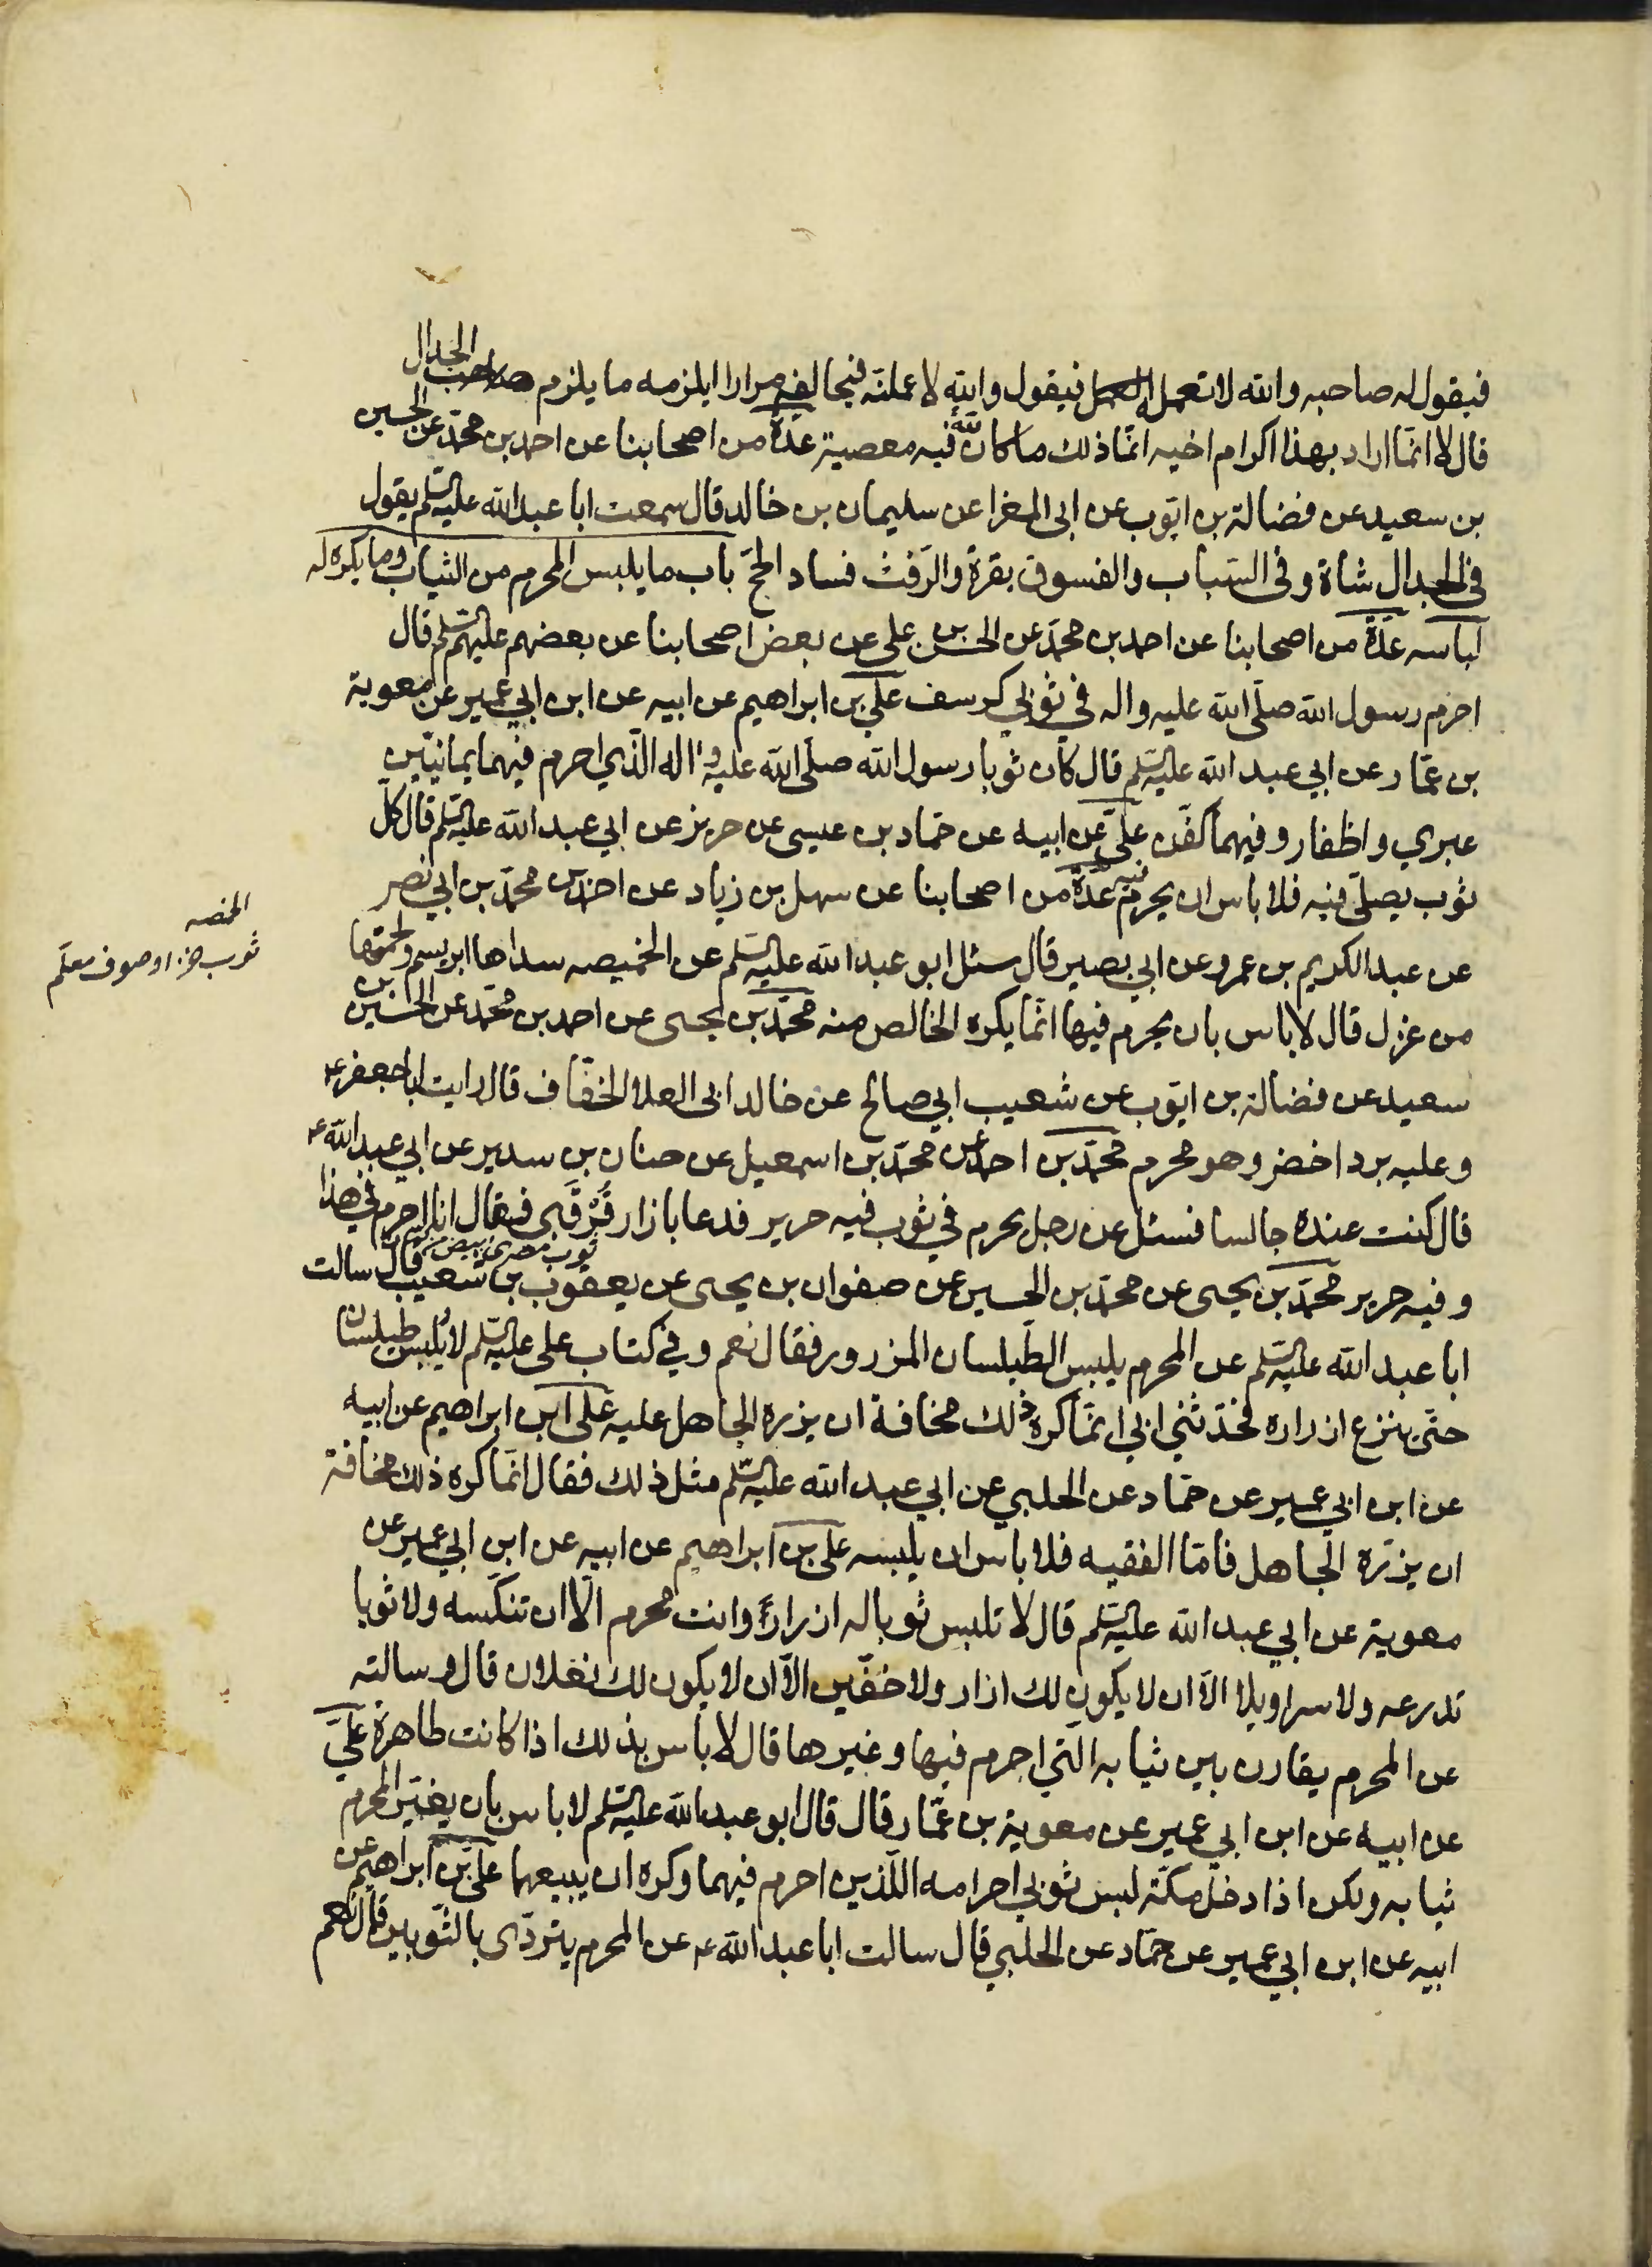 فيقول له صاحبه والله لا تعمله فيقول والله لا عملنّه فيخالفه مرارا ايلزمه ما يلزم صاحب الجدال
قال لا انّما اراد بهذا اكرام اخيه انّما ذلك ما كان لله فيه معصية عدّة من اصحابنا عن احمد بن محمّد عن الحسين
بن سعيد عن فضالة بن ايّوب عن ابى المغرا عن سليمان بن خالد قال سمعت ابا عبد الله عليه السّلم يقول
فى الجدال شاة وفى السّباب والفسوق بقرة والرّفث فساد الحجّ باب ما يلبس المحرم من الثياب وما يكره له
لباسه عدّة من اصحابنا عن احمد بن محمّد عن الحسن بن على عن بعض اصحابنا عن بعضهم عليهم السّلم قال
احرم رسول الله صلّى الله عليه واله في ثوبي كرسف علىّ بن ابراهيم عن ابيه عن ابن ابي عمير عن معوية
بن عمّار عن ابي عبد الله عليه السّلم قال كان ثوبا رسول الله صلّى الله عليه واله الّذي احرم فيهما يمانيّين
عبري واظفار وفيهما كفّن علىّ عن ابيه عن حمّاد بن عيسى عن حريز عن ابي عبد الله عليه السّلم قال كلّ
ثوب يصلّى فيه فلا باس ان يحرم فيه عدّة من اصحابنا عن سهل بن زياد عن احمد بن محمّد بن ابي نصر
عن عبد الكريم بن عمرو عن ابي بصير قال سئل ابو عبد الله عليه السّلم عن الخميصه سداها ابريسم ولحمتها
من غزل قال لا باس بان يحرم فيها انّما يكره الخالص منه محمّد بن يحيى عن احمد بن محمّد عن الحسين بن
سعيد عن فضالة بن ايّوب عن شعيب ابي صالح عن خالد ابى العلا الخفّاف قال رايت ابا جعفر ع
وعليه برد اخضر وهو محرم محمّد بن احمد عن محمّد بن اسمعيل عن حنان بن سدير عن ابي عبد الله ع
قال كنت عنده جالسا فسئل عن رجل يحرم في ثوب فيه حرير فدعا بازار قُرْقُبى فقال انا احرم في هذا
وفيه حرير محمّد بن يحيى عن محمّد بن الحسين عن صفوان بن يحيى عن يعقوب بن شعيب قال سالت
ابا عبد الله عليه السّلم عن المحرم يلبس الطّيلسان المزرور فقال نعم وفي كتاب على عليه السّلم لا يُلبس طيلسان
حتّى ينزع ازراره فحدّثني ابي انّما كره ذلك مخافة ان يزره الجاهل عليه على ابن ابراهيم عن ابيه
عن ابن ابي عمير عن حمّاد عن الحلبي عن ابي عبد الله عليه السّلم مثل ذلك فقال انّما كره ذلك مخافة
ان يزرّه الجاهل فامّا الفقيه فلا باس ان يلبسه على بن ابراهيم عن ابيه عن ابن ابي عمير عن
معوية عن ابي عبد الله عليه السّلم قال لا تلبس ثوبا له ازرار وانت محرم الّا ان تنكّسه ولا ثوبا
تدرعه ولا سراويلا الّا ان لا يكون لك ازار ولا خفّين الّا ان لا يكون لك نعلان قال وسالته
عن المحرم يقارن بين ثيابه الّتي احرم فيها وغيرها قال لا باس بذلك اذا كانت طاهرة علىّ
عن ابيه عن ابن ابي عمير عن معوية بن عمّار قال قال ابو عبد الله عليه السّلم لا باس بان يغيّر المحرم
ثيابه ولكن اذا دخل مكّة لبس ثوبي احرامه اللّذين احرم فيهما وكره ان يبيعهما علىّ بن ابراهيم عن
ابيه عن ابن ابي عمير عن حمّاد عن الحلبي قال سالت ابا عبد الله ع عن المحرم يتردّى بالثّوبين قال نعم
الخمصه
ثوب خز او صوف معلّم